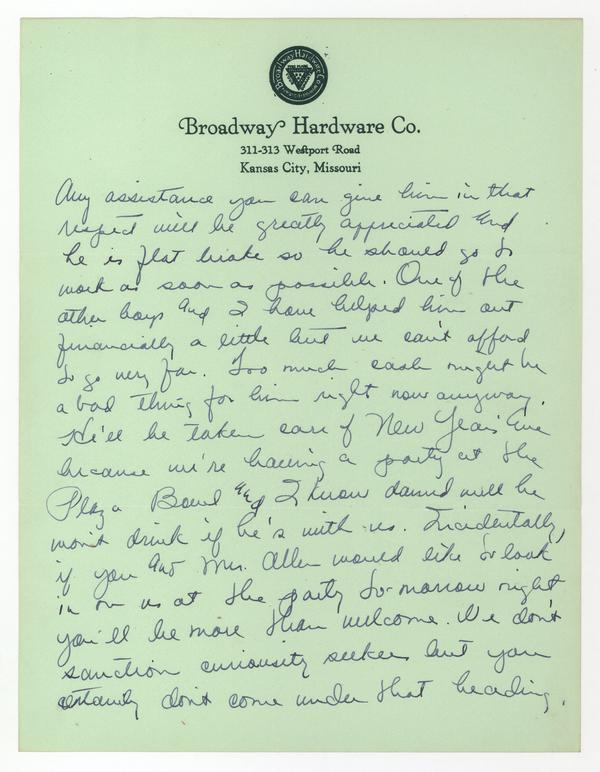 Broadway Hardware Co.
Broadway Hardware Co.
311-313 Westport Road
Kansas City, Missouri
Any assistance you can give him in that
respect will be greatly appriciated and
he is flat broke so he should go to
work as soon as possible. One of the
other boys and I have helped him out
financially a little but we can't afford
to go very far. Too much cash might be
a bad thing for him right now anyway.
He'll be taken care of New Years Eve
because we're having a party at the
Plaza Bowl and I know damd well he
won't drink if he's with us. Incidentally,
if you and Mrs. Allen would like to look
in on us at the party to-morrow night
you'll be more than welcome. We don't
sanction curiousity seekers but you
certainly don't come under that heading.